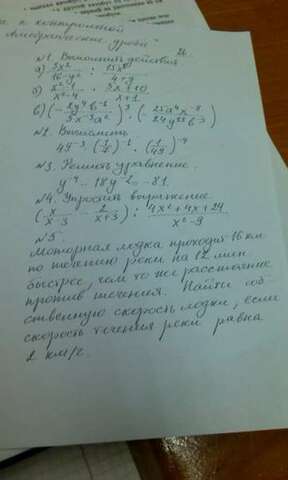 к контрольной
Алгебраические дроби".
№1. Выполнить действия
а) 3x² / 16-y² : 15x⁸ / 4+y
б) x²-1 / x²-4 · 5x+10 / x+1
в) (- 2y⁴b⁻¹ / 5x⁻³a²)³ · (- 25a⁴x⁻⁸ / 24y²²b⁻³)
№2. Вычислить
49⁻³ · (1/7)⁻¹ · (1/49)⁻⁴
№3. Решить уравнение
y⁴ - 18y² = -81.
№4. Упростить выражение
(x / x-3 - 2 / x+3) : 4x²+4x+24 / x²-9
№5.
Моторная лодка проходит 16 км
по течению реки на 12 мин
быстрее, чем то же расстояние
против течения. Найти соб-
ственную скорость лодки, если
скорость течения реки равна
2 км/ч.